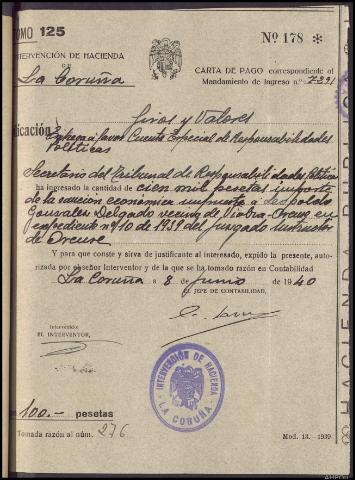 TOMO 125
Nº 178 *
INTERVENCIÓN DE HACIENDA
La Coruña
CARTA DE PAGO correspondiente al
Mandamiento de Ingreso n.º 7221
Giros y Valores
Entrega a favor Cuenta Especial de Responsabilidades
Políticas
Secretario del Tribunal de Responsabilidades Políticas
ha ingresado la cantidad de cien mil pesetas importe
de la sanción económica impuesta a Leopoldo
González Delgado vecino de Orense en
expediente nº 10 de 1939 del juzgado instructor
de Orense
Y para que conste y sirva de justificante al interesado, expido la presente, auto-
rizada por el señor Interventor y de la que se ha tomado razón en Contabilidad
La Coruña a 8 de junio de 1940
EL JEFE DE CONTABILIDAD,
Intervenido:
EL INTERVENTOR,
INTERVENCIÓN DE HACIENDA
LA CORUÑA
100.- pesetas
Tomada razón al núm. 276
Mod. 13. - 1939